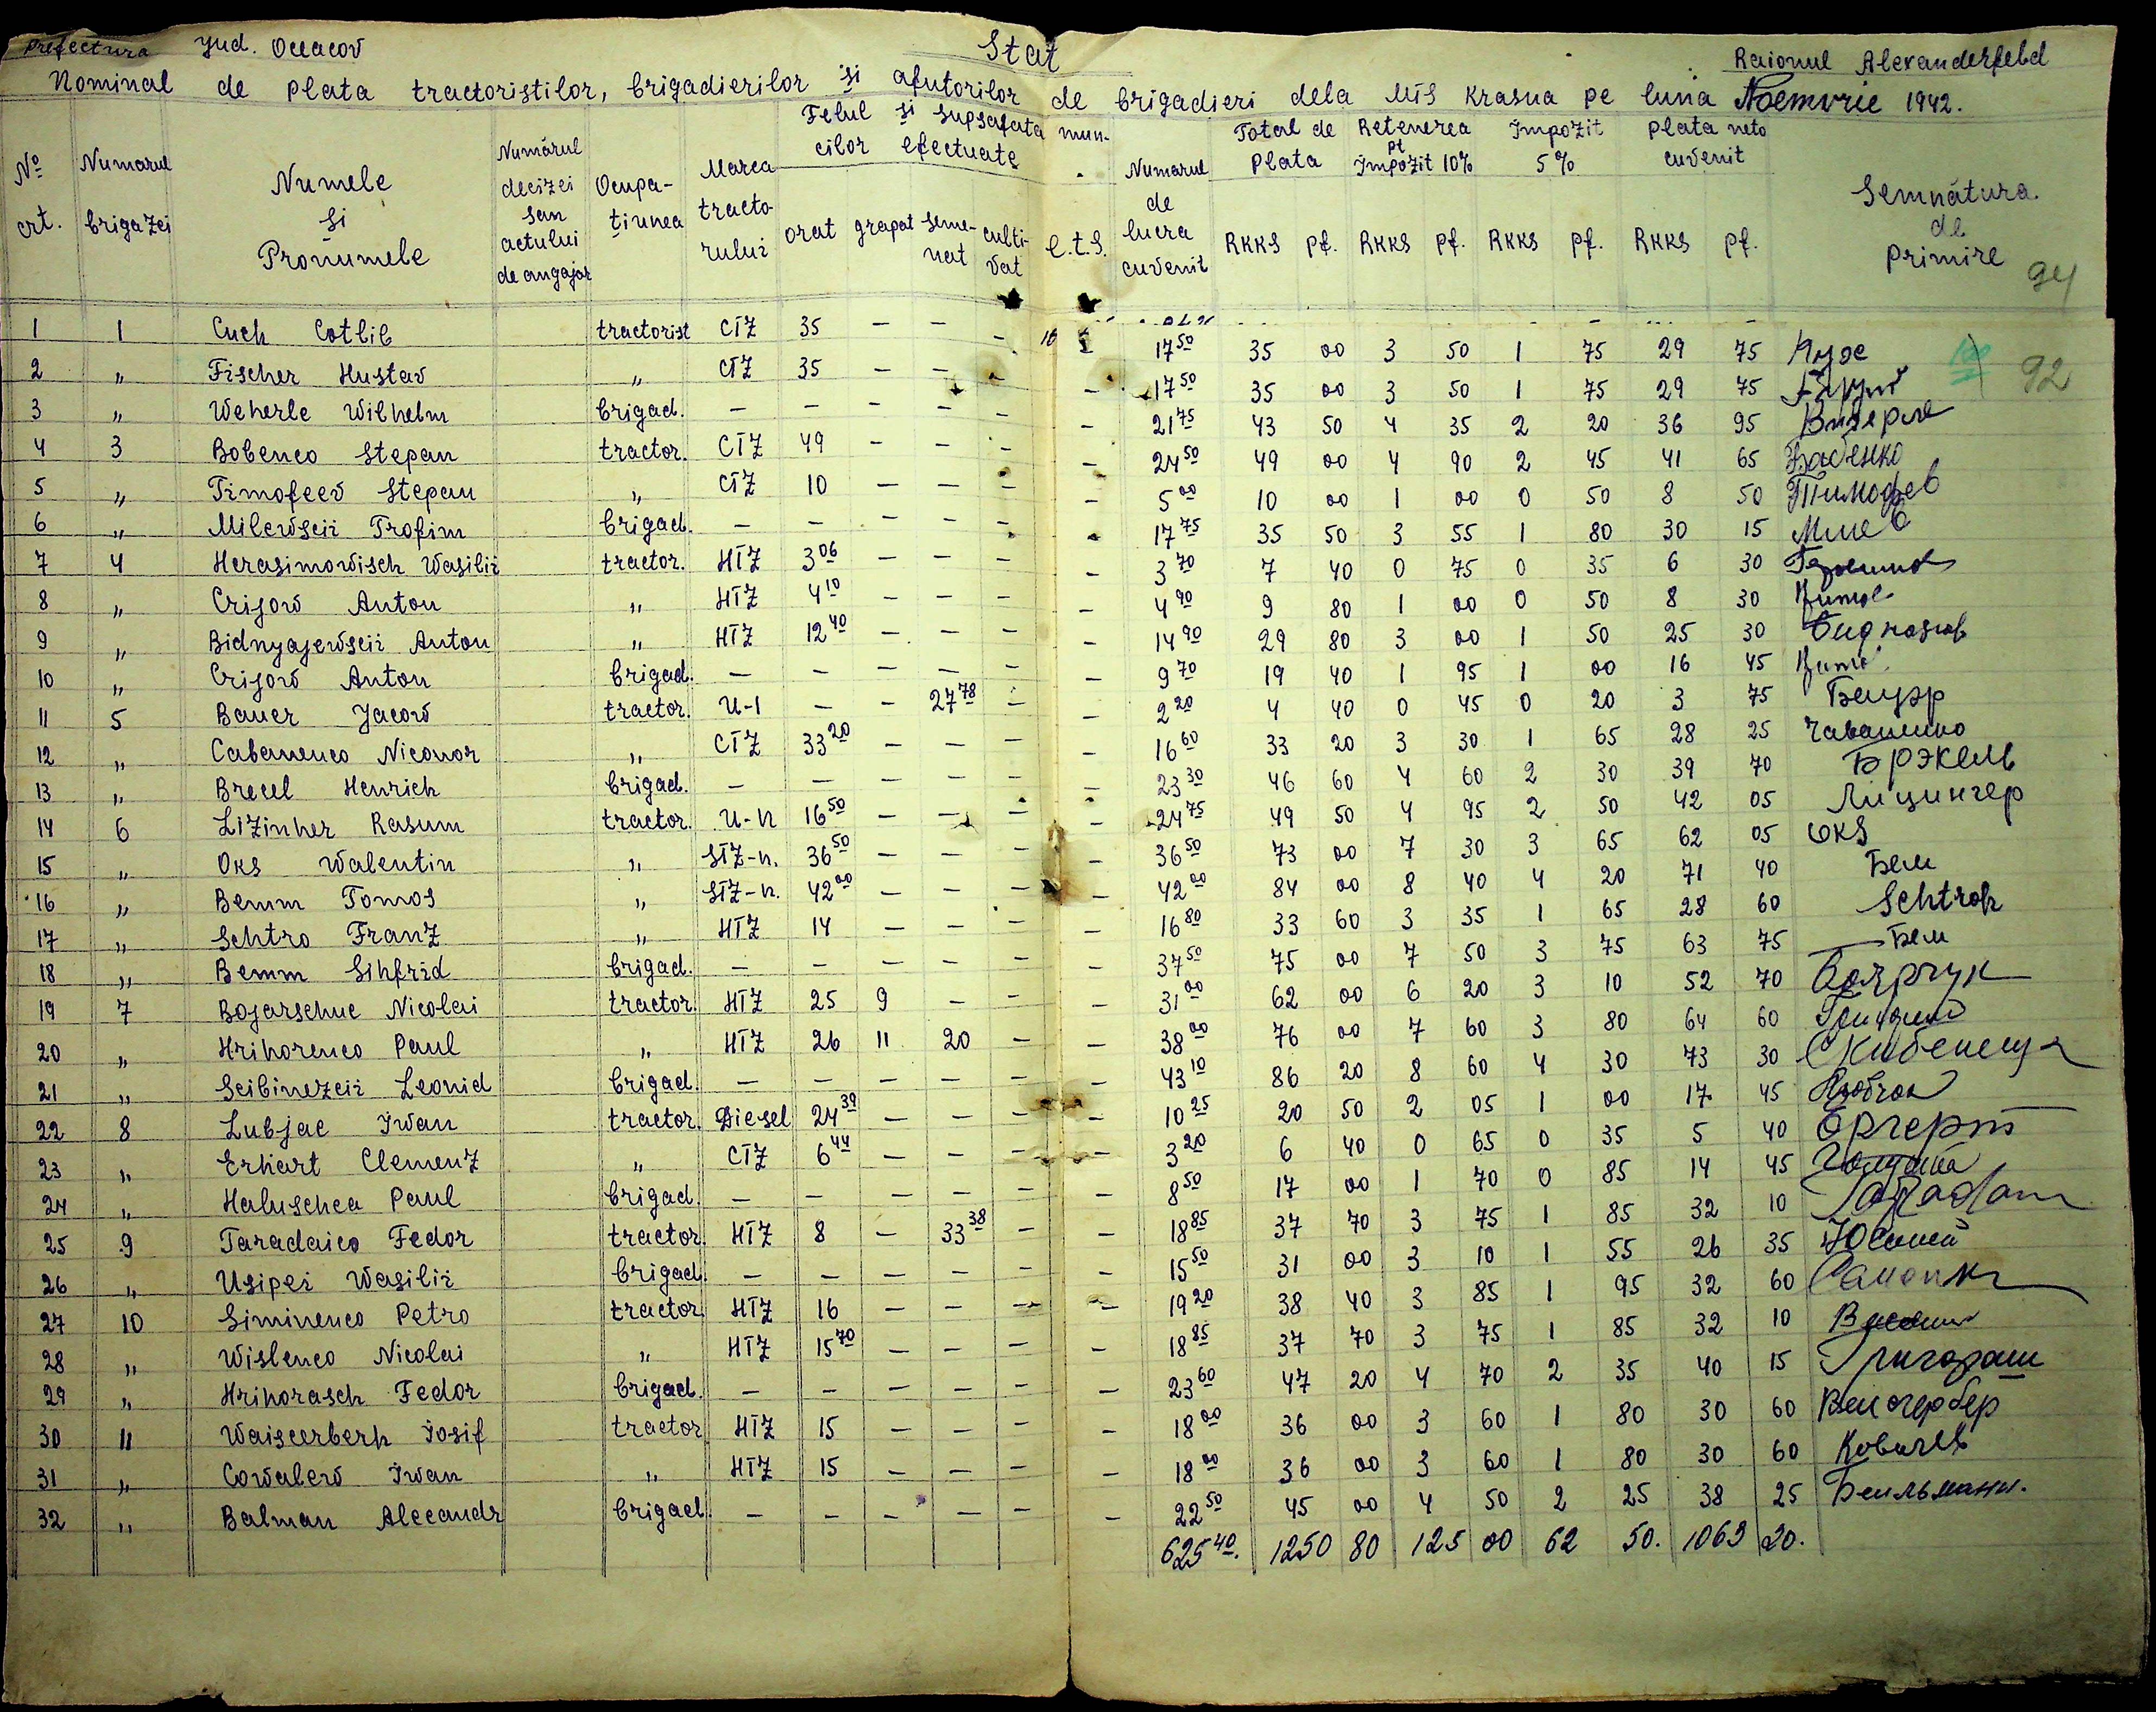 Prefectura jud. Oceacov Stat Raionul Alexanderfeld
Nominal de plata tractoristilor, brigadierilor și ajutorilor de brigadieri dela MTS Krasna pe luna Noemvrie 1942.
№ crt. Numarul brigazei Numele și Pronumele Numărul decizei sau actului de angajar Ocupațiunea Marca tractorului Felul și supsafata muncilor efectuate orat grapat semenat cultivat e.t.s. Numarul de lucra cuvenit Total de plata RKKS pf. Retenerea pt Impozit 10% RKKS pf. Impozit 5% RKKS pf. plata neto cuvenit RKKS pf. Semnătura de primire 94
1 1 Cuch Cotlib tractorist CTZ 35 — — — 17 50 35 00 3 50 1 75 29 75 Кухе 92
2 „ Fischer Hustav „ CTZ 35 — — — — 17 50 35 00 3 50 1 75 29 75
3 „ Weherle Wilhelm brigad. — — — — — — 21 75 43 50 4 35 2 20 36 95 Вигерле
4 3 Bobenco Stepan tractor. CTZ 49 — — — — 24 50 49 00 4 90 2 45 41 65 Бабенко
5 „ Timofeev Stepan „ CTZ 10 — — — — 5 00 10 00 1 00 0 50 8 50 Тимофеев
6 „ Milewscii Trofim brigad. — — — — — — 17 75 35 50 3 55 1 80 30 15 Милев
7 4 Herasimowisch Wasilii tractor. HTZ 3 06 — — — — 3 70 7 40 0 75 0 35 6 30
8 „ Crijow Anton „ HTZ 4 10 — — — — 4 90 9 80 1 00 0 50 8 30
9 „ Bidnyajewscii Anton „ HTZ 12 40 — — — — 14 90 29 80 3 00 1 50 25 30
10 „ Crijow Anton brigad. — — — — — — 9 70 19 40 1 95 1 00 16 45
11 5 Bauer Jacow tractor. U-1 — — 27 78 — — 2 20 4 40 0 45 0 20 3 75 Бауэр
12 „ Cabanenco Niconor „ CTZ 33 20 — — — — 16 60 33 20 3 30 1 65 28 25
13 „ Brecel Henrich brigad. — — — — — — 23 30 46 60 4 60 2 30 39 70 Брэкель
14 6 Lizinher Rasum tractor. U-n 16 50 — — — — 24 75 49 50 4 95 2 50 42 05 Лицингер
15 „ Oks Walentin „ STZ-n. 36 50 — — — — 36 50 73 00 7 30 3 65 62 05 OKS
16 „ Bemm Tomos „ STZ-n. 42 00 — — — — 42 00 84 00 8 40 4 20 71 40 Бем
17 „ Schtro Franz „ HTZ 14 — — — — 16 80 33 60 3 35 1 65 28 60 Schtroh
18 „ Bemm Sihfrid brigad. — — — — — — 37 50 75 00 7 50 3 75 63 75 Бем
19 7 Bojarschuc Nicolai tractor. HTZ 25 9 — — — 31 00 62 00 6 20 3 10 52 70 Боярчук
20 „ Hrihorenco Paul „ HTZ 26 11 20 — — 38 00 76 00 7 60 3 80 64 60
21 „ Scibinezcii Leonid brigad. — — — — — — 43 10 86 20 8 60 4 30 73 30
22 8 Lubjac Iwan tractor. Diesel 24 39 — — — — 10 25 20 50 2 05 1 00 17 45
23 „ Erhart Clemenz „ CTZ 6 44 — — — — 3 20 6 40 0 65 0 35 5 40 Эргерт
24 „ Haluschca Paul brigad. — — — — — — 8 50 17 00 1 70 0 85 14 45
25 9 Taradaico Fedor tractor. HTZ 8 — 33 38 — — 18 85 37 70 3 75 1 85 32 10
26 „ Usipei Wasilii brigad. — — — — — — 15 50 31 00 3 10 1 55 26 35
27 10 Siminenco Petro tractor. HTZ 16 — — — — 19 20 38 40 3 85 1 95 32 60
28 „ Wislenco Nicolai „ HTZ 15 70 — — — — 18 85 37 70 3 75 1 85 32 10
29 „ Hrihorasch Fedor brigad. — — — — — — 23 60 47 20 4 70 2 35 40 15 Григораш
30 11 Waiscerberh Iosif tractor HTZ 15 — — — — 18 00 36 00 3 60 1 80 30 60
31 „ Cowalew Iwan „ HTZ 15 — — — — 18 00 36 00 3 60 1 80 30 60 Ковалев
32 „ Balman Alecandr brigad. — — — — — — 22 50 45 00 4 50 2 25 38 25 Бельманн.
625 40. 1250 80 125 00 62 50. 1063 20.